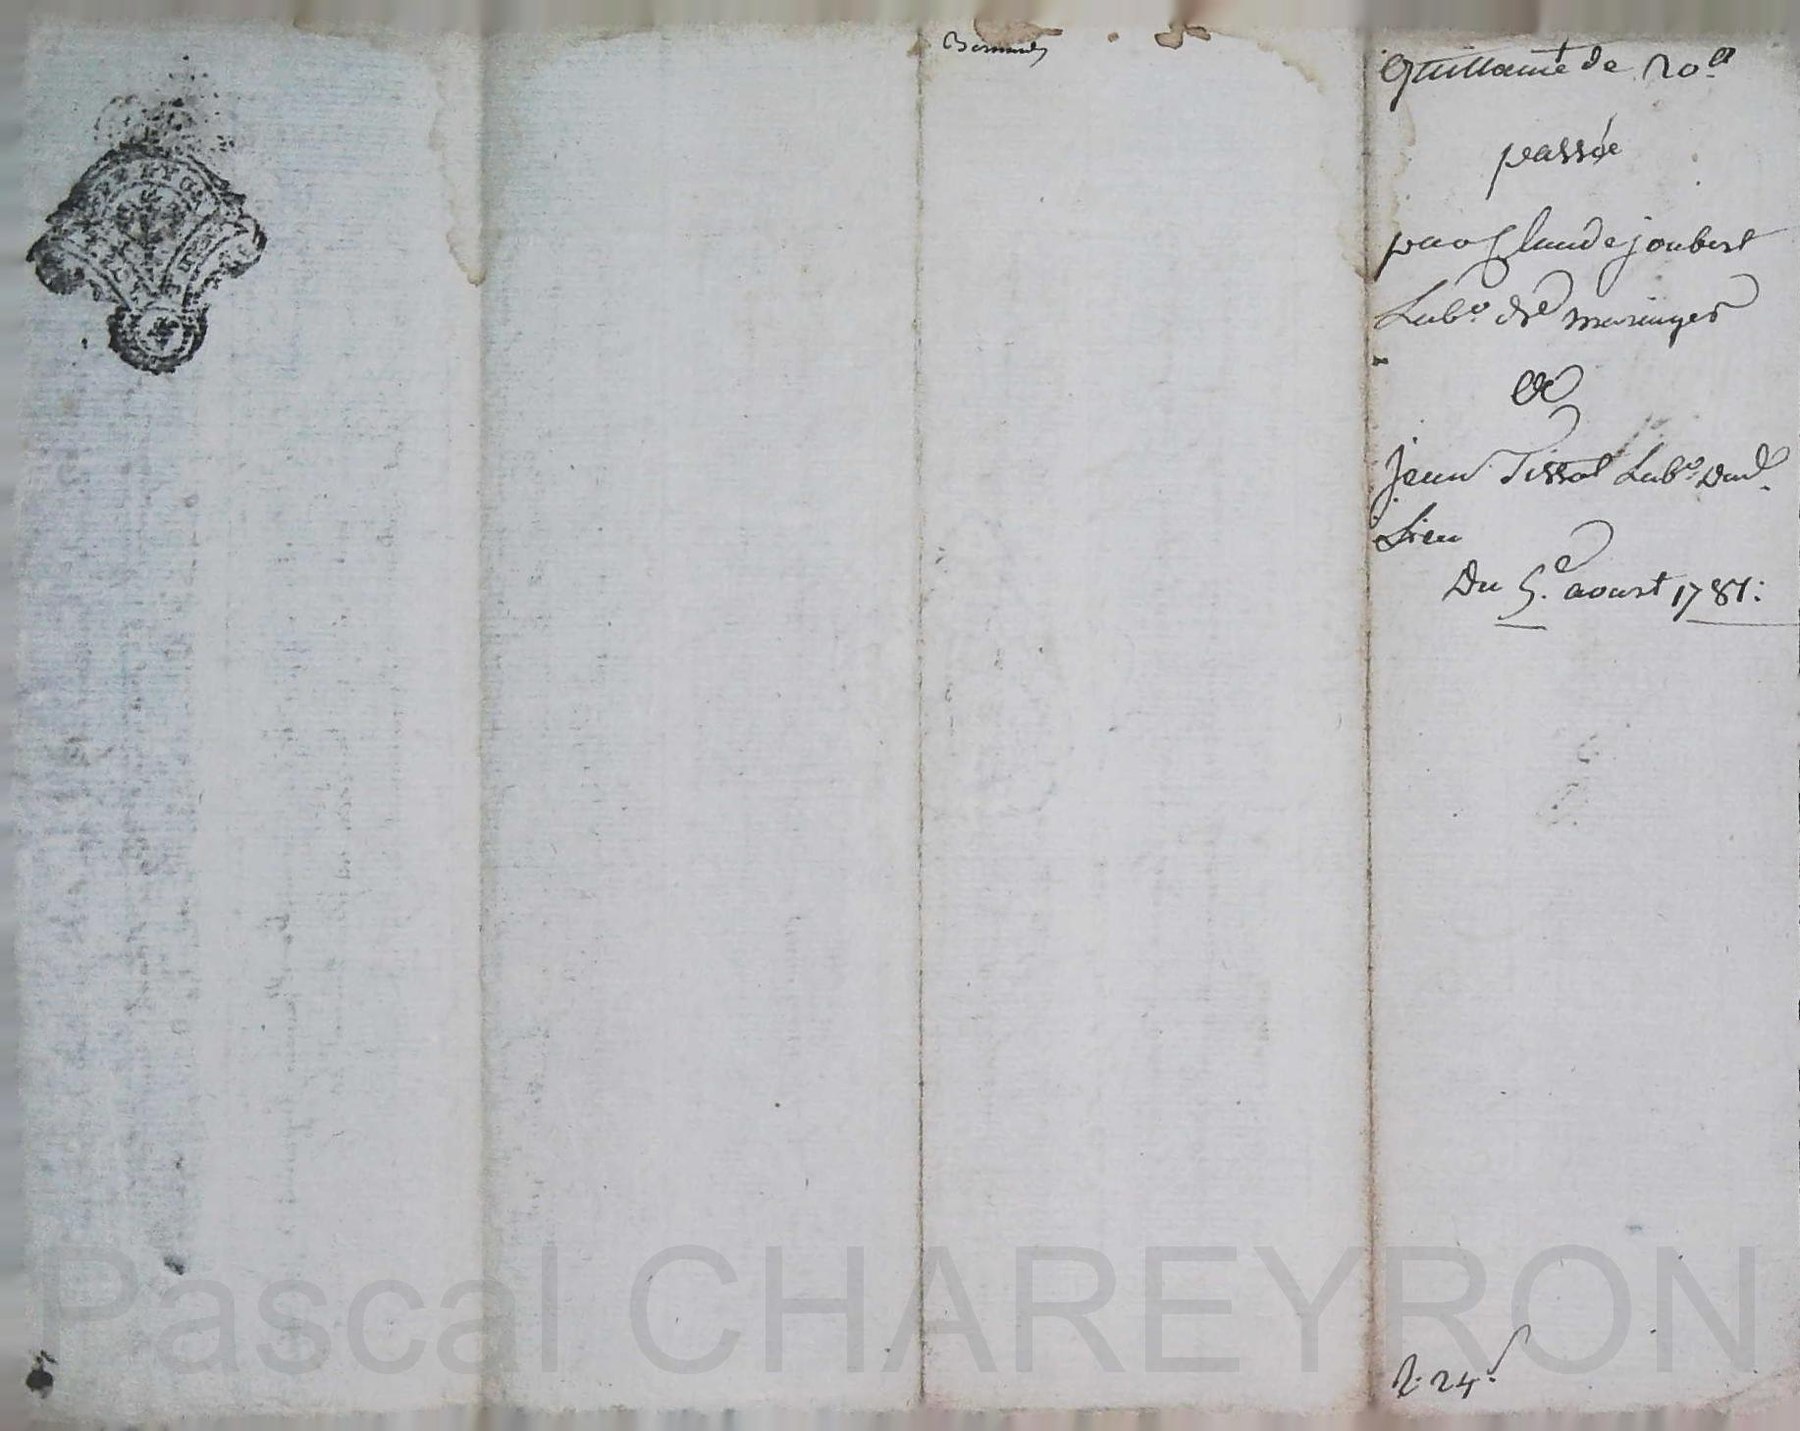 Quittance de 20ᵗᵗ
passée
par Claude joubert
Labʳ de maringes
et
jean Tissot Labʳ dud.
Lieu
Du 5.ᵉ aoust 1781.
24ˢ
Pascal CHAREYRON